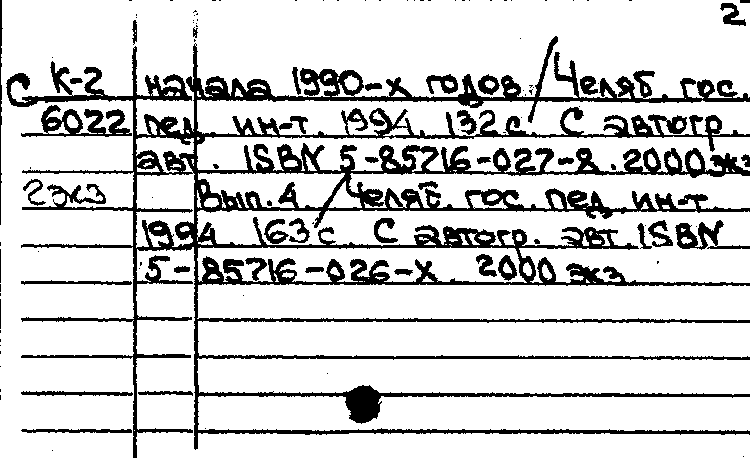 2
С К-2 начала 1990-х годов / Челяб. гос.
6022 пед. ин-т. 1994. 132 с. С автогр.
авт. ISBN 5-85716-027-8. 2000 экз
2 экз Вып. 4. / Челяб. гос. пед. ин-т.
1994. 163 с. С автогр. авт. ISBN
5-85716-026-X. 2000 экз.